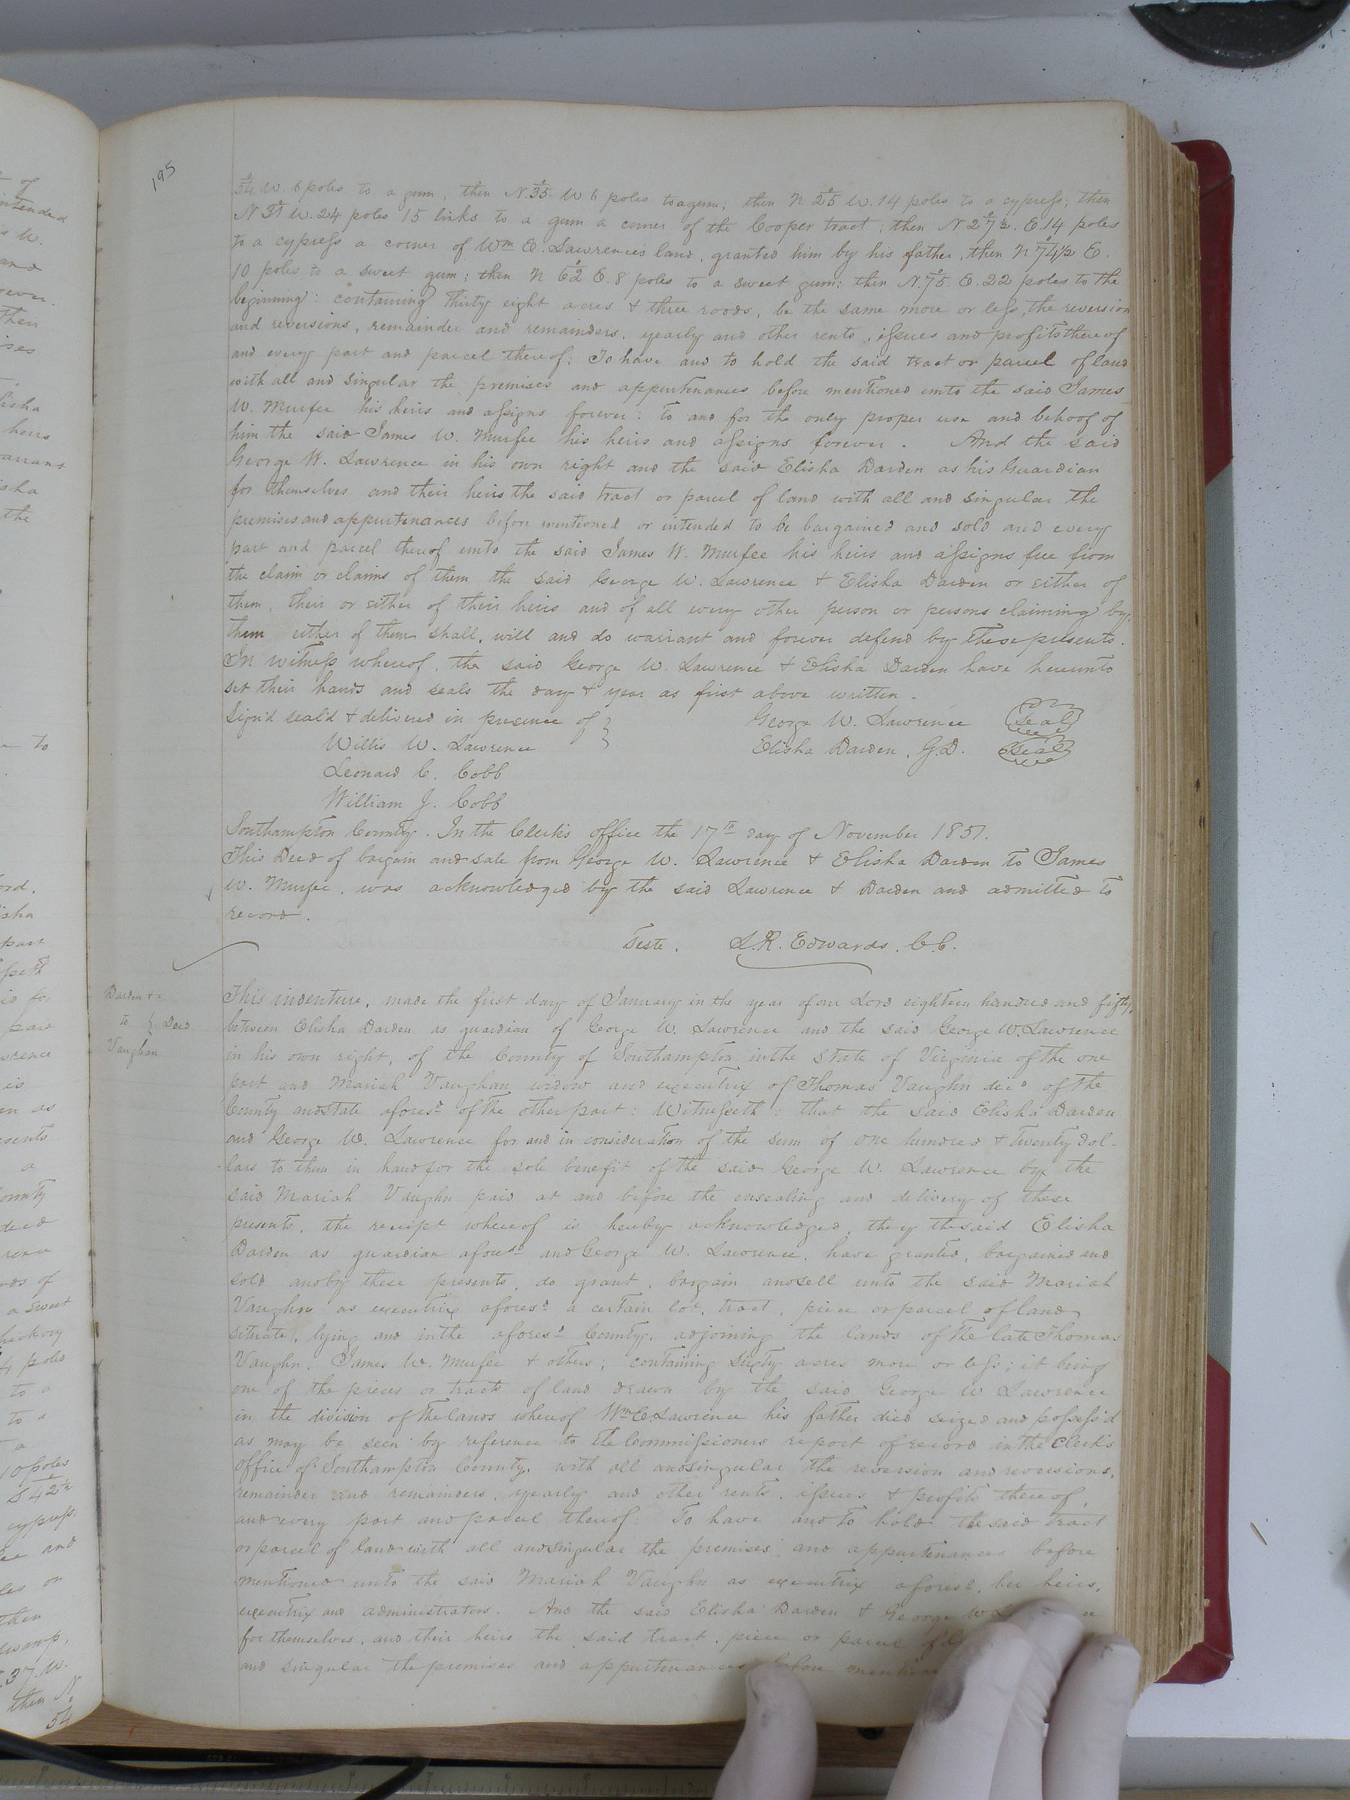 195
54° W. 6 poles to a gum; then N. 35° W 6 poles to a gum; then N 25° W. 14 poles to a cypress; then
N 31° W. 24 poles 15 links to a gum a corner of the Cooper tract; then N 27½° E. 14 poles
to a cypress a corner of Wm E. Lawrence's land, granted him by his father, then N 74½° E.
10 poles to a sweet gum; then N 62° E. 8 poles to a sweet gum; then N. 75° E. 22 poles to the
beginning: containing thirty eight acres & three roods, be the same more or less, the reversion
and reversions, remainder and remainders, yearly and other rents, issues and profits thereof
and every part and parcel thereof: To have and to hold the said tract or parcel of land
with all and singular the premises and appurtenances before mentioned unto the said James
W. Murfee his heirs and assigns forever: to and for the only proper use and behoof of
him the said James W. Murfee his heirs and assigns forever. And the said
George W. Lawrence in his own right and the said Elisha Darden as his Guardian
for themselves and their heirs the said tract or parcel of land with all and singular the
premises and appurtenances before mentioned or intended to be bargained and sold and every
part and parcel thereof unto the said James W. Murfee his heirs and assigns free from
the claim or claims of them the said George W. Lawrence & Elisha Darden or either of
them, their or either of their heirs and of all every other person or persons claiming by
them either of them shall, will and do warrant and forever defend by these presents.
In witness whereof, the said George W. Lawrence & Elisha Darden have hereunto
set their hands and seals the day & year as first above written.
Sign'd seal'd & delivered in presence of } George W. Lawrence (Seal)
Willis W. Lawrence Elisha Darden, G.D. (Seal)
Leonard C. Cobb
William J. Cobb
Southampton County. In the Clerk's office the 17th day of November 1851.
This Deed of bargain and sale from George W. Lawrence & Elisha Darden to James
W. Murfee, was acknowledged by the said Lawrence & Darden and admitted to
record.
Teste. L.R. Edwards, C.C.
Darden &c
to } Deed
Vaughan
This indenture, made the first day of January in the year of our Lord eighteen hundred and fifty,
between Elisha Darden as guardian of George W. Lawrence and the said George W. Lawrence
in his own right, of the County of Southampton in the State of Virginia of the one
part and Mariah Vaughan widow and executrix of Thomas Vaughn decd of the
County and state aforesd of the other part: Witnesseth: that the said Elisha Darden
and George W. Lawrence for and in consideration of the sum of one hundred & twenty dol-
lars to them in hand for the sole benefit of the said George W. Lawrence by the
said Mariah Vaughn paid at and before the ensealing and delivery of these
presents, the receipt whereof is hereby acknowledged, they the said Elisha
Darden as guardian aforesd and George W. Lawrence, have granted, bargained and
sold and by these presents, do grant, bargain and sell unto the said Mariah
Vaughn as executrix aforesd a certain lot, tract, piece or parcel of land
situate, lying and in the aforesd County, adjoining the lands of the late Thomas
Vaughn, James W. Murfee & others; containing sixty acres more or less; it being
one of the pieces or tracts of land drawn by the said George W Lawrence
in the division of the lands whereof Wm E Lawrence his father died seized and possess'd
as may be seen by reference to the Commissioners report of record in the Clerk's
office of Southampton County, with all and singular the reversion and reversions,
remainder and remainders, yearly and other rents, issues & profits thereof,
and every part and parcel thereof: To have and to hold the said tract
or parcel of land with all and singular the premises and appurtenances before
mentioned unto the said Mariah Vaughn as executrix aforesd, her heirs,
executrix and administrators. And the said Elisha Darden & George W
for themselves, and their heirs the said tract, piece or parcel
and singular the premises and appurtenances before